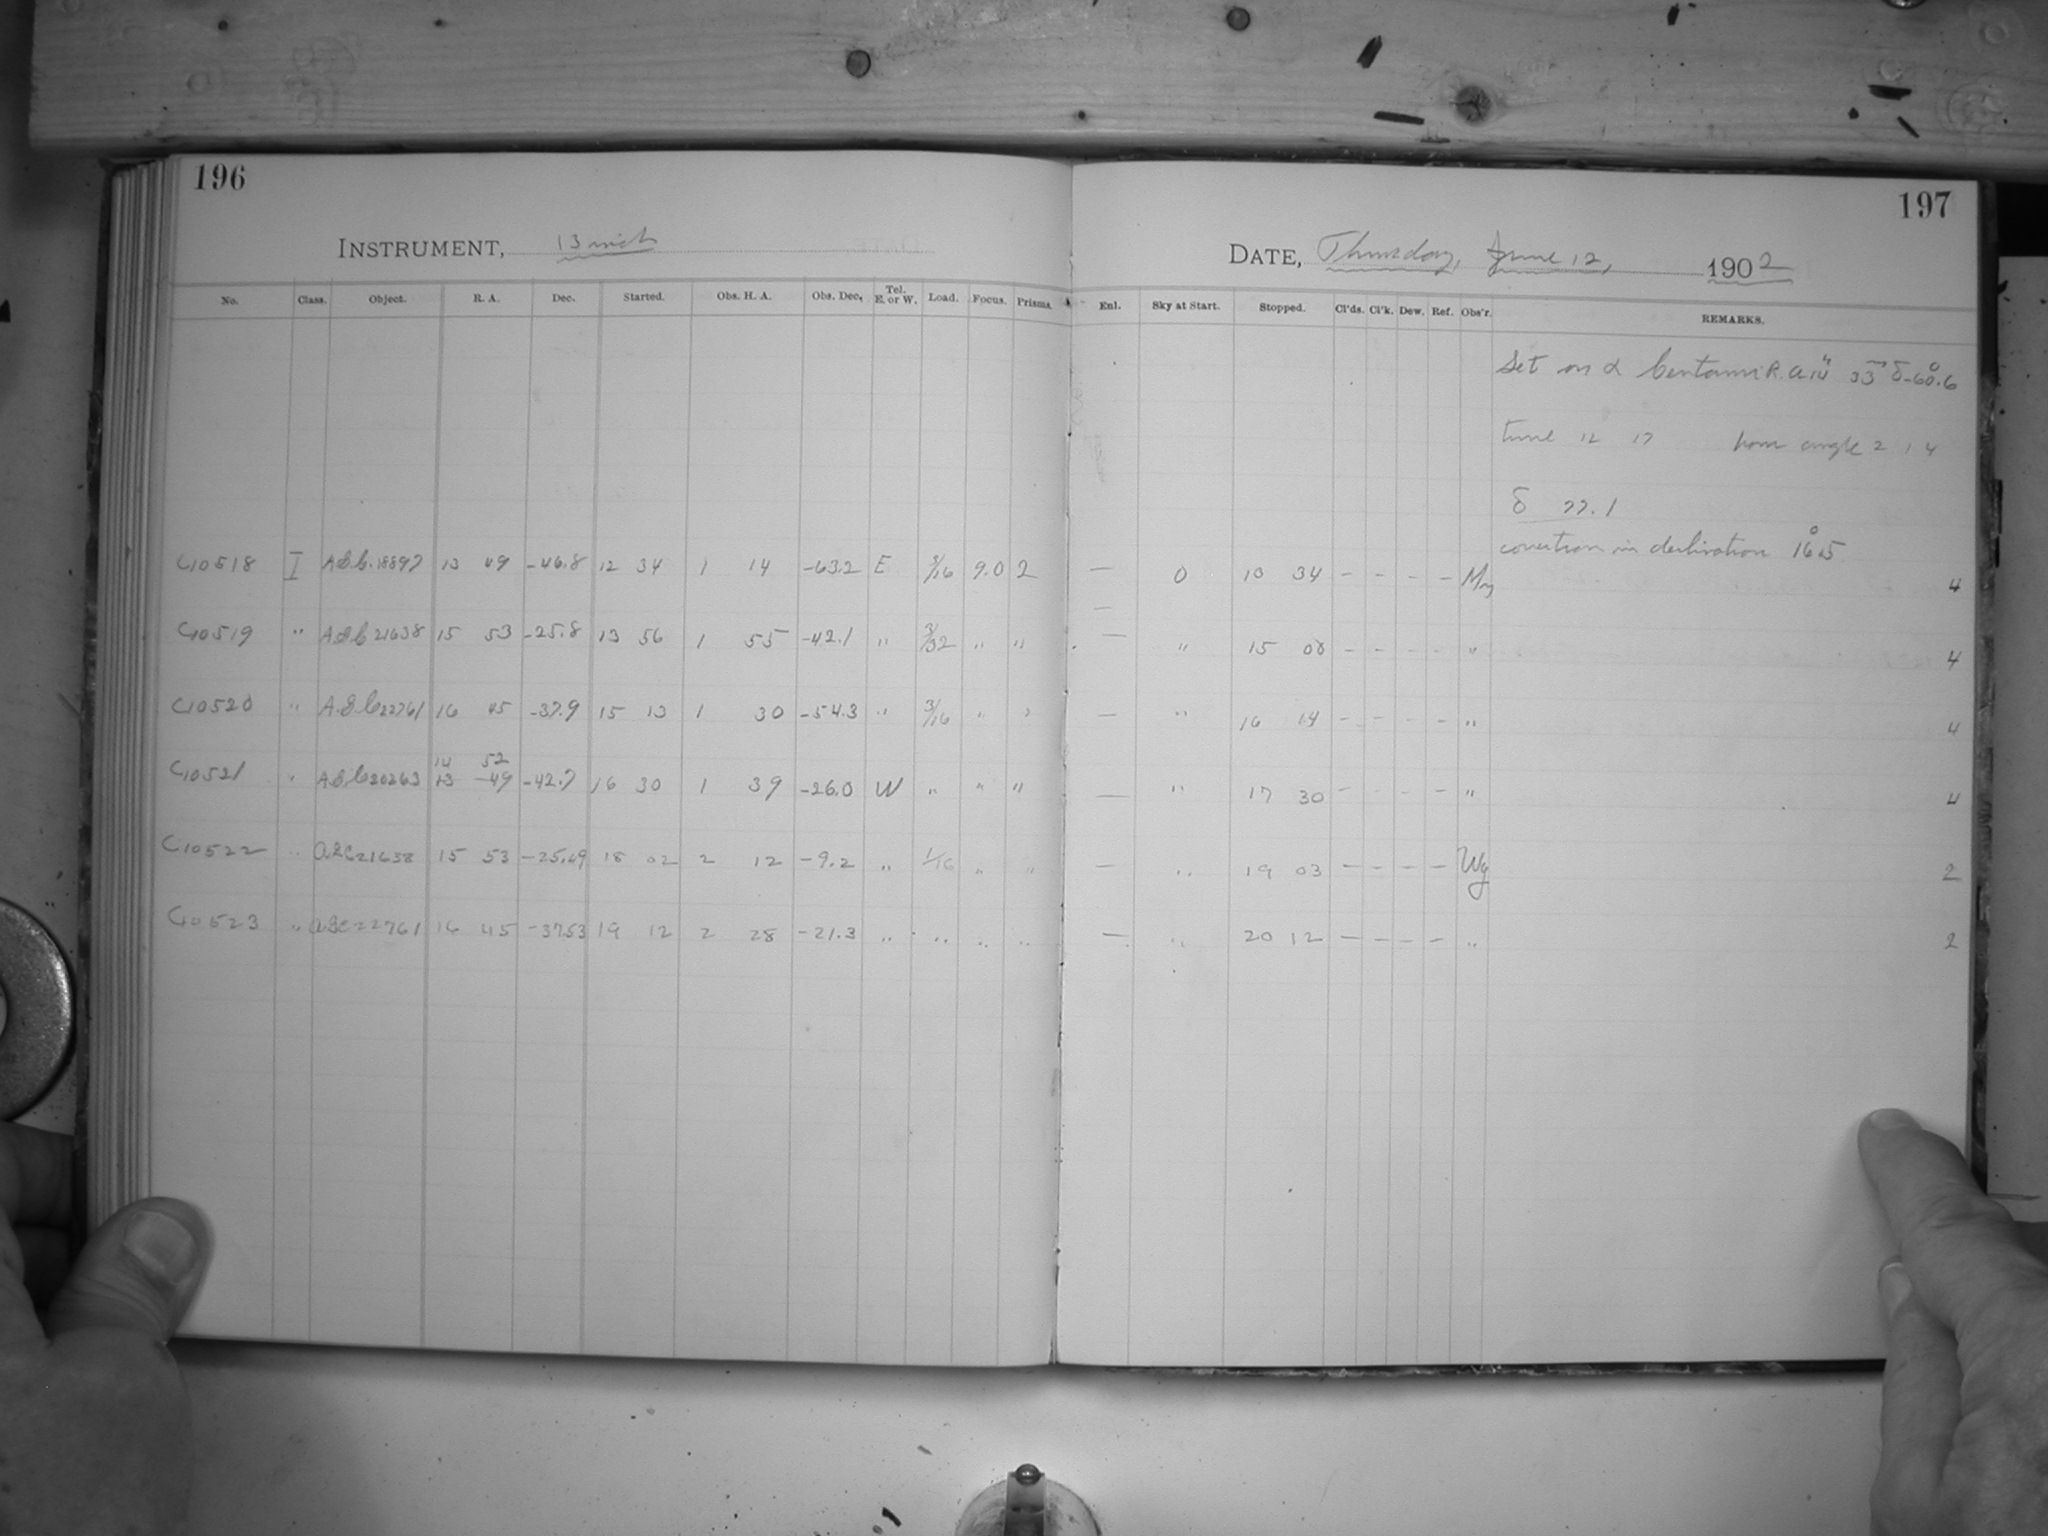 196
INSTRUMENT, 13 inch
No. Class. Object. R. A. Dec. Started. Obs. H. A. Obs. Dec. Tel. E. or W. Load. Focus. Prisms.
C10518 I A.G.C. 18897 13 49 -46.8 12 34 1 14 -63.2 E 3/16 9.0 2
C10519 " A.G.C. 21638 15 53 -25.8 13 56 1 55 -42.1 " 3/32 " "
C10520 " A.G.C. 22761 16 45 -37.9 15 13 1 30 -54.3 " 3/16 " "
14 52
C10521 " A.G.C. 20263 13 49 -42.7 16 30 1 39 -26.0 W " " "
C10522 " AGC 21638 15 53 -25.49 18 02 2 12 -9.2 " 1/16 " "
C10523 " AGC 22761 16 45 -37.53 19 12 2 28 -21.3 " " " "
197
DATE, Thursday, June 12, 1902
Enl. Sky at Start. Stopped. Cl'ds. Cl'k. Dew. Ref. Obs'r. REMARKS.
Set on α Centauri R.A. 14h 33m δ -60°.6
time 12 17 hour angle 2 14
δ 77.1
correction in declination 16°.5
— 0 13 34 - - - - My 4
—
— " 15 08 - - - - " 4
— " 16 14 - - - - " 4
— " 17 30 - - - - " 4
— " 19 03 - - - - Wy 2
— " 20 12 - - - - " 2